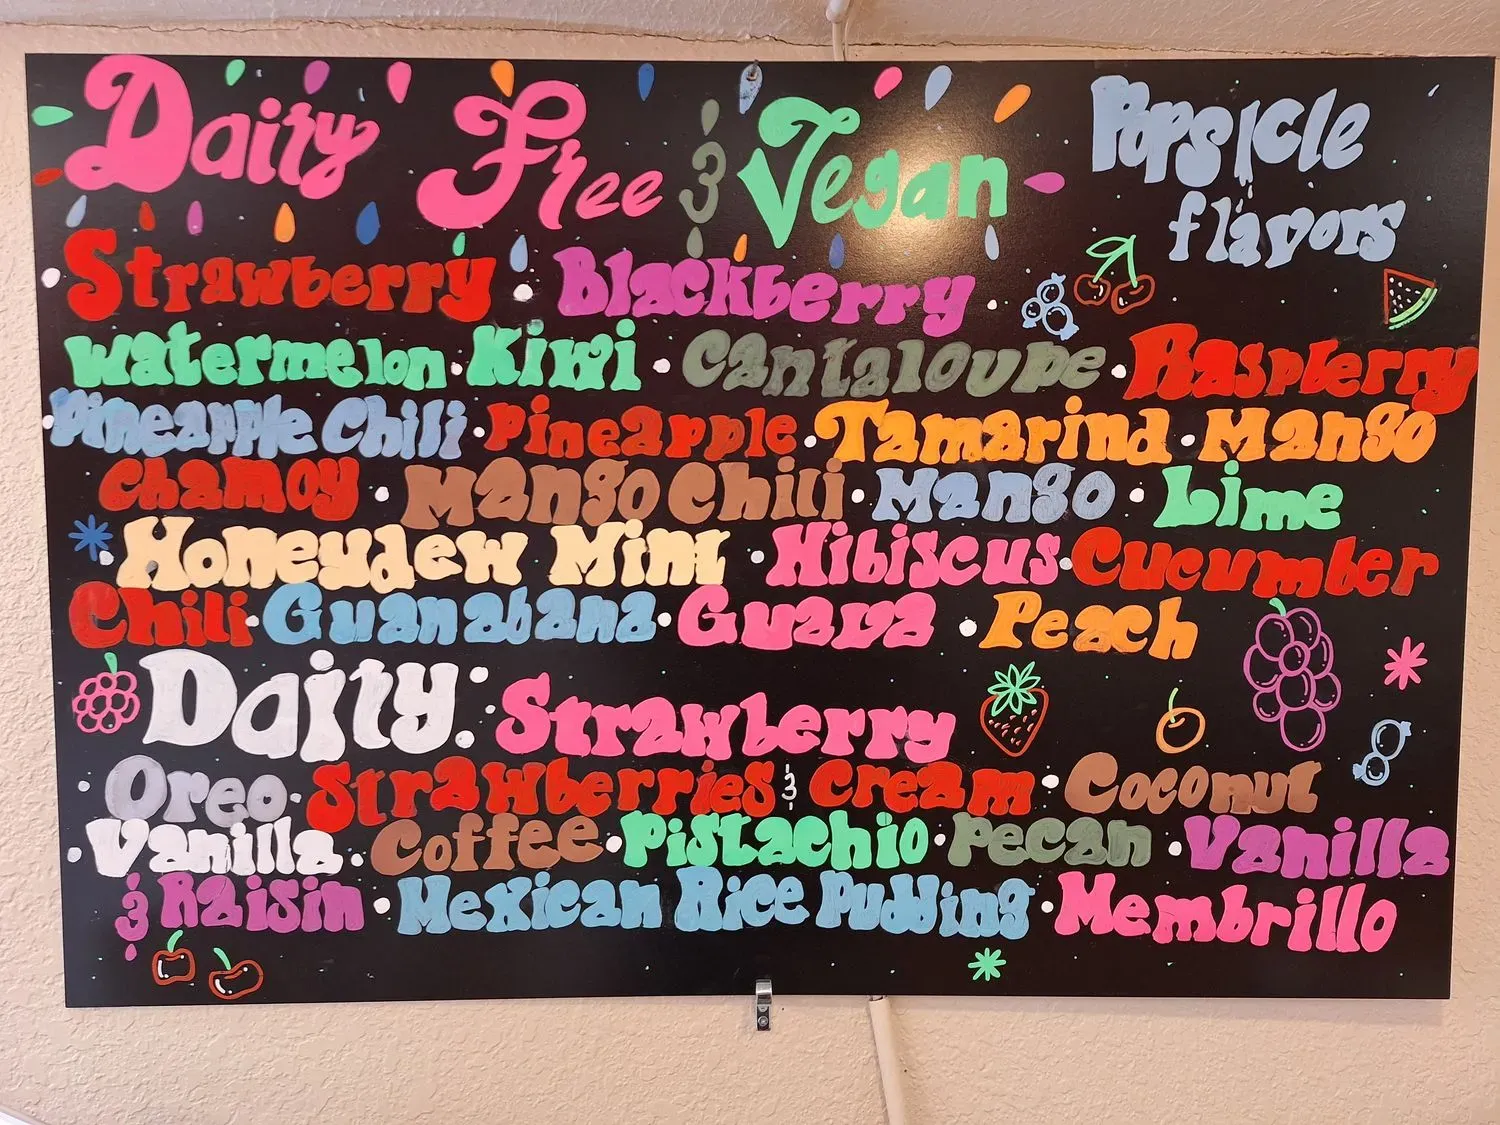 Daity Free & Vegan Popsicle
flavors
Strawberry · Blackberry ·
Watermelon · Kiwi · Cantaloupe · Raspberry
· Pineapple Chili · Pineapple · Tamarind · Mango
Chamoy · Mango Chili · Mango · Lime
· Honeydew Mint · Hibiscus · Cucumber
Chili · Guanabana · Guava · Peach
Daity: Strawberry
· Oreo · Strawberries & Cream · Coconut
· Vanilla · Coffee · Pistachio · Pecan · Vanilla
& Raisin · Mexican Rice Pudding · Membrillo